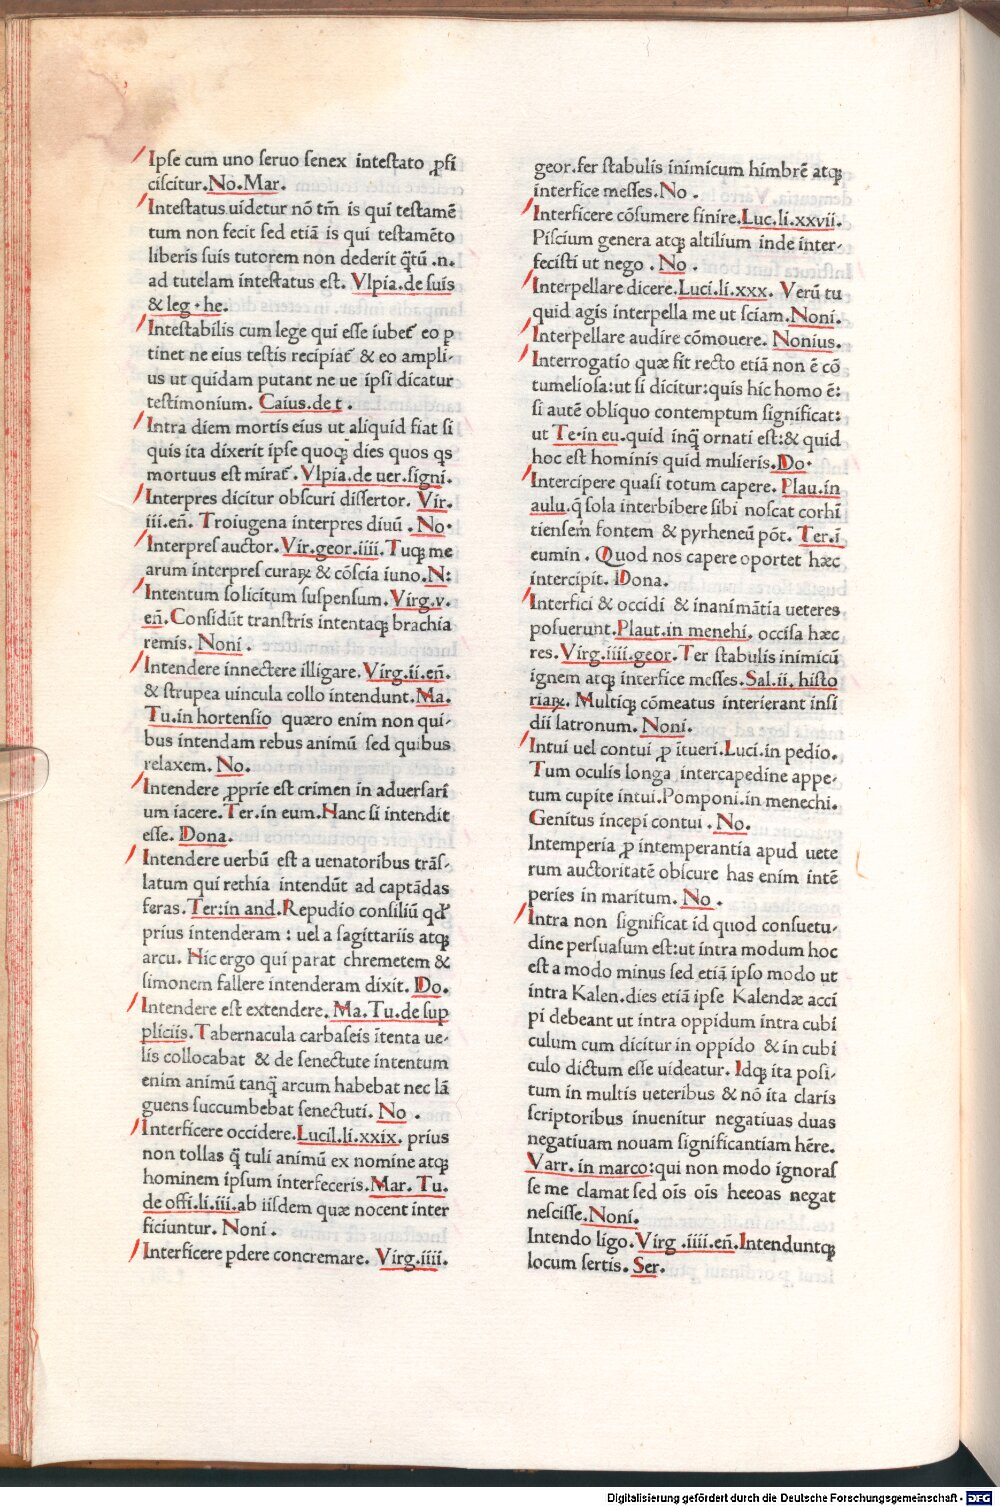 Ipse cum uno seruo senex intestato ꝓfi
ciscitur. No. Mar.
Intestatus uidetur nō tm̄ is qui testamē
tum non fecit sed etiā is qui testamēto
liberis suis tutorem non dederit q̄tū .n.
ad tutelam intestatus est. Vlpia.de suis
& leg . he.
Intestabilis cum lege qui esse iubet̃ eo p
tinet ne eius testis recipiat̃ & eo ampli-
us ut quidam putant ne ue ipsi dicatur
testimonium. Caius.de t .
Intra diem mortis eius ut aliquid fiat si
quis ita dixerit ipse quoqꝫ dies quos qs
mortuus est mirat̃. Vlpia.de uer.signi.
Interpres dicitur obscuri dissertor. Vir.
iii.eñ. Troiugena interpres diuū . No.
Interpres auctor. Vir.geor.iiii. Tuqꝫ me
arum interpres curaꝝ & cōscia iuno. N:
Intentum solicitum suspensum. Virg.v.
eñ. Considūt transtris intentaqꝫ brachia
remis. Noni .
Intendere innectere illigare. Virg.ii.eñ.
& strupea uincula collo intendunt. Ma.
Tu.in hortensio quæro enim non qui-
bus intendam rebus animū sed quibus
relaxem. No.
Intendere ꝓprie est crimen in aduersari
um iacere. Ter.in eum. Hanc si intendit
esse. Dona.
Intendere uerbū est a uenatoribus trās-
latum qui rethia intendūt ad captādas
feras. Ter:in and. Repudio consiliū qd̓
prius intenderam : uel a sagittariis atqꝫ
arcu. Hic ergo qui parat chremetem &
simonem fallere intenderam dixit. Do.
Intendere est extendere. Ma. Tu. de sup
pliciis. Tabernacula carbaseis ītenta ue-
lis collocabat & de senectute intentum
enim animū tanq̄ arcum habebat nec lā
guens succumbebat senectuti. No .
Interficere occidere. Lucil.li.xxix. prius
non tollas q̄ tuli animū ex nomine atqꝫ
hominem ipsum interfeceris. Mar. Tu.
de offi.li.iii.ab iisdem quæ nocent inter
ficiuntur. Noni .
Interficere ꝑdere concremare. Virg.iiii.
geor.fer stabulis inimicum himbrē atqꝫ
interfice messes. No .
Interficere cōsumere finire. Luc.li.xxvii.
Piscium genera atqꝫ altilium inde inter-
fecisti ut nego . No .
Interpellare dicere. Luci.li.xxx. Verū tu
quid agis interpella me ut sciam. Noni.
Interpellare audire cōmouere. Nonius.
Interrogatio quæ fit recto etiā non ē cō
tumeliosa:ut si dicitur:quis hic homo ē:
si autē obliquo contemptum significat:
ut Te.in eu.quid inq̄ ornati est:& quid
hoc est hominis quid mulieris. Do.
Intercipere quasi totum capere. Plau.in
aulu.q̄ sola interbibere sibi noscat corhī
tiensem fontem & pyrheneū pōt. Ter.i
eumin . Quod nos capere oportet hæc
intercipit. Dona.
Interfici & occidi & inanimātia ueteres
posuerunt. Plaut.in menehi. occisa hæc
res. Virg.iiii.geor. Ter stabulis inimicū
ignem atqꝫ interfice messes. Sal.ii. histo
riaꝝ. Multiqꝫ cōmeatus interierant insi
dii latronum. Noni.
Intui uel contui ꝓ ītueri. Luci.in pedio.
Tum oculis longa intercapedine appe-
tum cupite intui. Pomponi.in menechi.
Genitus incepi contui . No.
Intemperia ꝓ intemperantia apud uete
rum auctoritatē obscure has enim intē
peries in maritum. No .
Intra non significat id quod consuetu-
dine persuasum est:ut intra modum hoc
est a modo minus sed etiā ipso modo ut
intra Kalen.dies etiā ipse Kalendæ acci
pi debeant ut intra oppidum intra cubi
culum cum dicitur in oppido & in cubi
culo dictum esse uideatur. Idqꝫ ita posi-
tum in multis ueteribus & nō ita claris
scriptoribus inuenitur negatiuas duas
negatiuam nouam significantiam hēre.
Varr. in marco:qui non modo ignoras
se me clamat sed oīs oīs heeoas negat
nescisse. Noni.
Intendo ligo. Virg .iiii.eñ. Intenduntqꝫ
locum sertis. Ser.
Digitalisierung gefördert durch die Deutsche Forschungsgemeinschaft - DFG